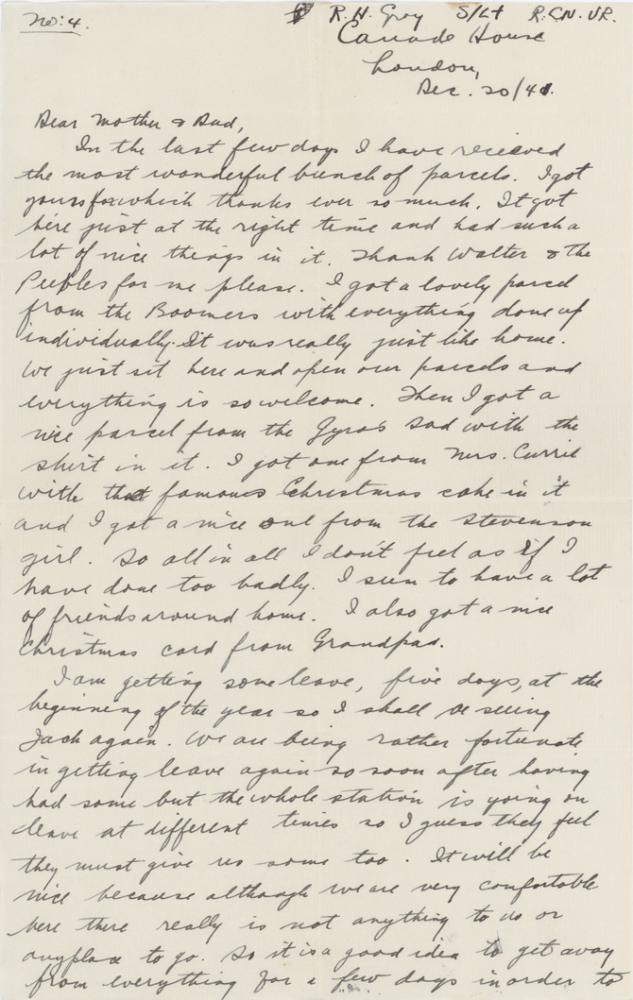 No: 4.
R. H. Gray S/Lt R.C.N.V.R.
Canada House
London,
Dec. 20/41.
Dear Mother & Dad,
In the last few days I have recieved
the most wonderful bunch of parcels. I got
yours for which thanks ever so much. It got
here just at the right time and had such a
lot of nice things in it. Thank Walter & the
Peebles for me please. I got a lovely parcel
from the Boomers with everything done up
individually. It was really just like home.
We just sit here and open our parcels and
everything is so welcome. Then I got a
nice parcel from the Gyros Dad with the
shirt in it. I got one from Mrs. Currie
with that famous Christmas cake in it
and I got a nice one from the Stevenson
girl. So all in all I don't feel as if I
have done too badly. I seem to have a lot
of friends around home. I also got a nice
Christmas card from Grandpad.
I am getting some leave, five days, at the
beginning of the year so I shall be seeing
Jack again. We are being rather fortunate
in getting leave again so soon after having
had some but the whole station is going on
leave at different times so I guess they feel
they must give us some too. It will be
nice because although we are very comfortable
here there really is not anything to do or
anyplace to go. So it is a good idea to get away
from everything for a few days in order to